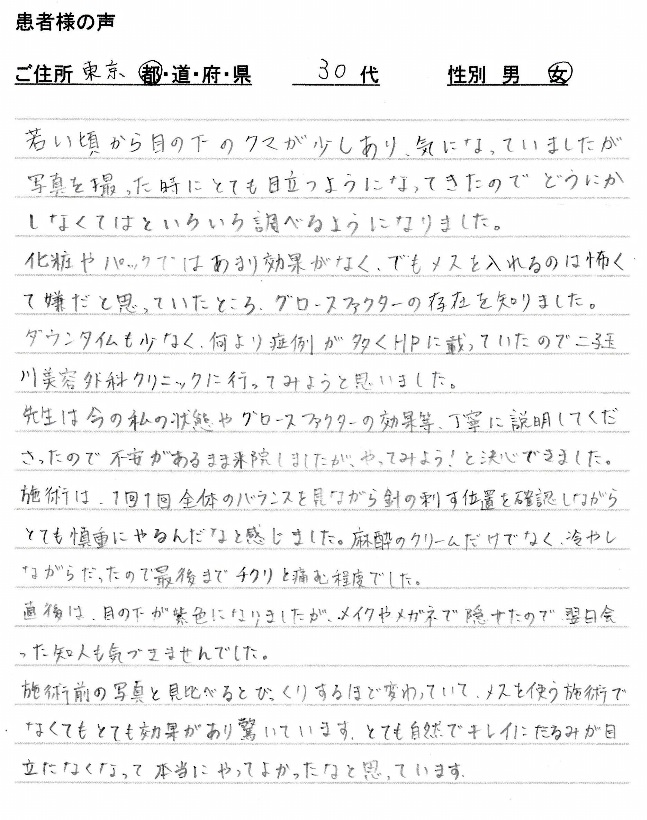 患者様の声
ご住所 東京 都・道・府・県 30 代 性別 男 女
若い頃から目の下のクマが少しあり、気になっていましたが
写真を撮った時にとても目立つようになってきたのでどうにか
しなくてはといろいろ調べるようになりました。
化粧やパックではあまり効果がなく、でもメスを入れるのは怖く
て嫌だと思っていたところ、グロースファクターの存在を知りました。
ダウンタイムも少なく、何より症例が多くHPに載っていたので二子玉
川美容外科クリニックに行ってみようと思いました。
先生は今の私の状態やグロースファクターの効果等、丁寧に説明してくだ
さったので不安があるまま来院しましたが、やってみよう!と決心できました。
施術は、1回1回全体のバランスを見ながら針の刺す位置を確認しながら
とても慎重にやるんだなと感じました。麻酔のクリームだけでなく、冷やし
ながらだったので最後までチクリと痛む程度でした。
直後は、目の下が紫色になりましたが、メイクやメガネで隠せたので翌日会
った知人も気づきませんでした。
施術前の写真と見比べるとびっくりするほど変わっていて、メスを使う施術で
なくてもとても効果があり驚いています。とても自然でキレイにたるみが目
立たなくなって本当にやってよかったなと思っています。